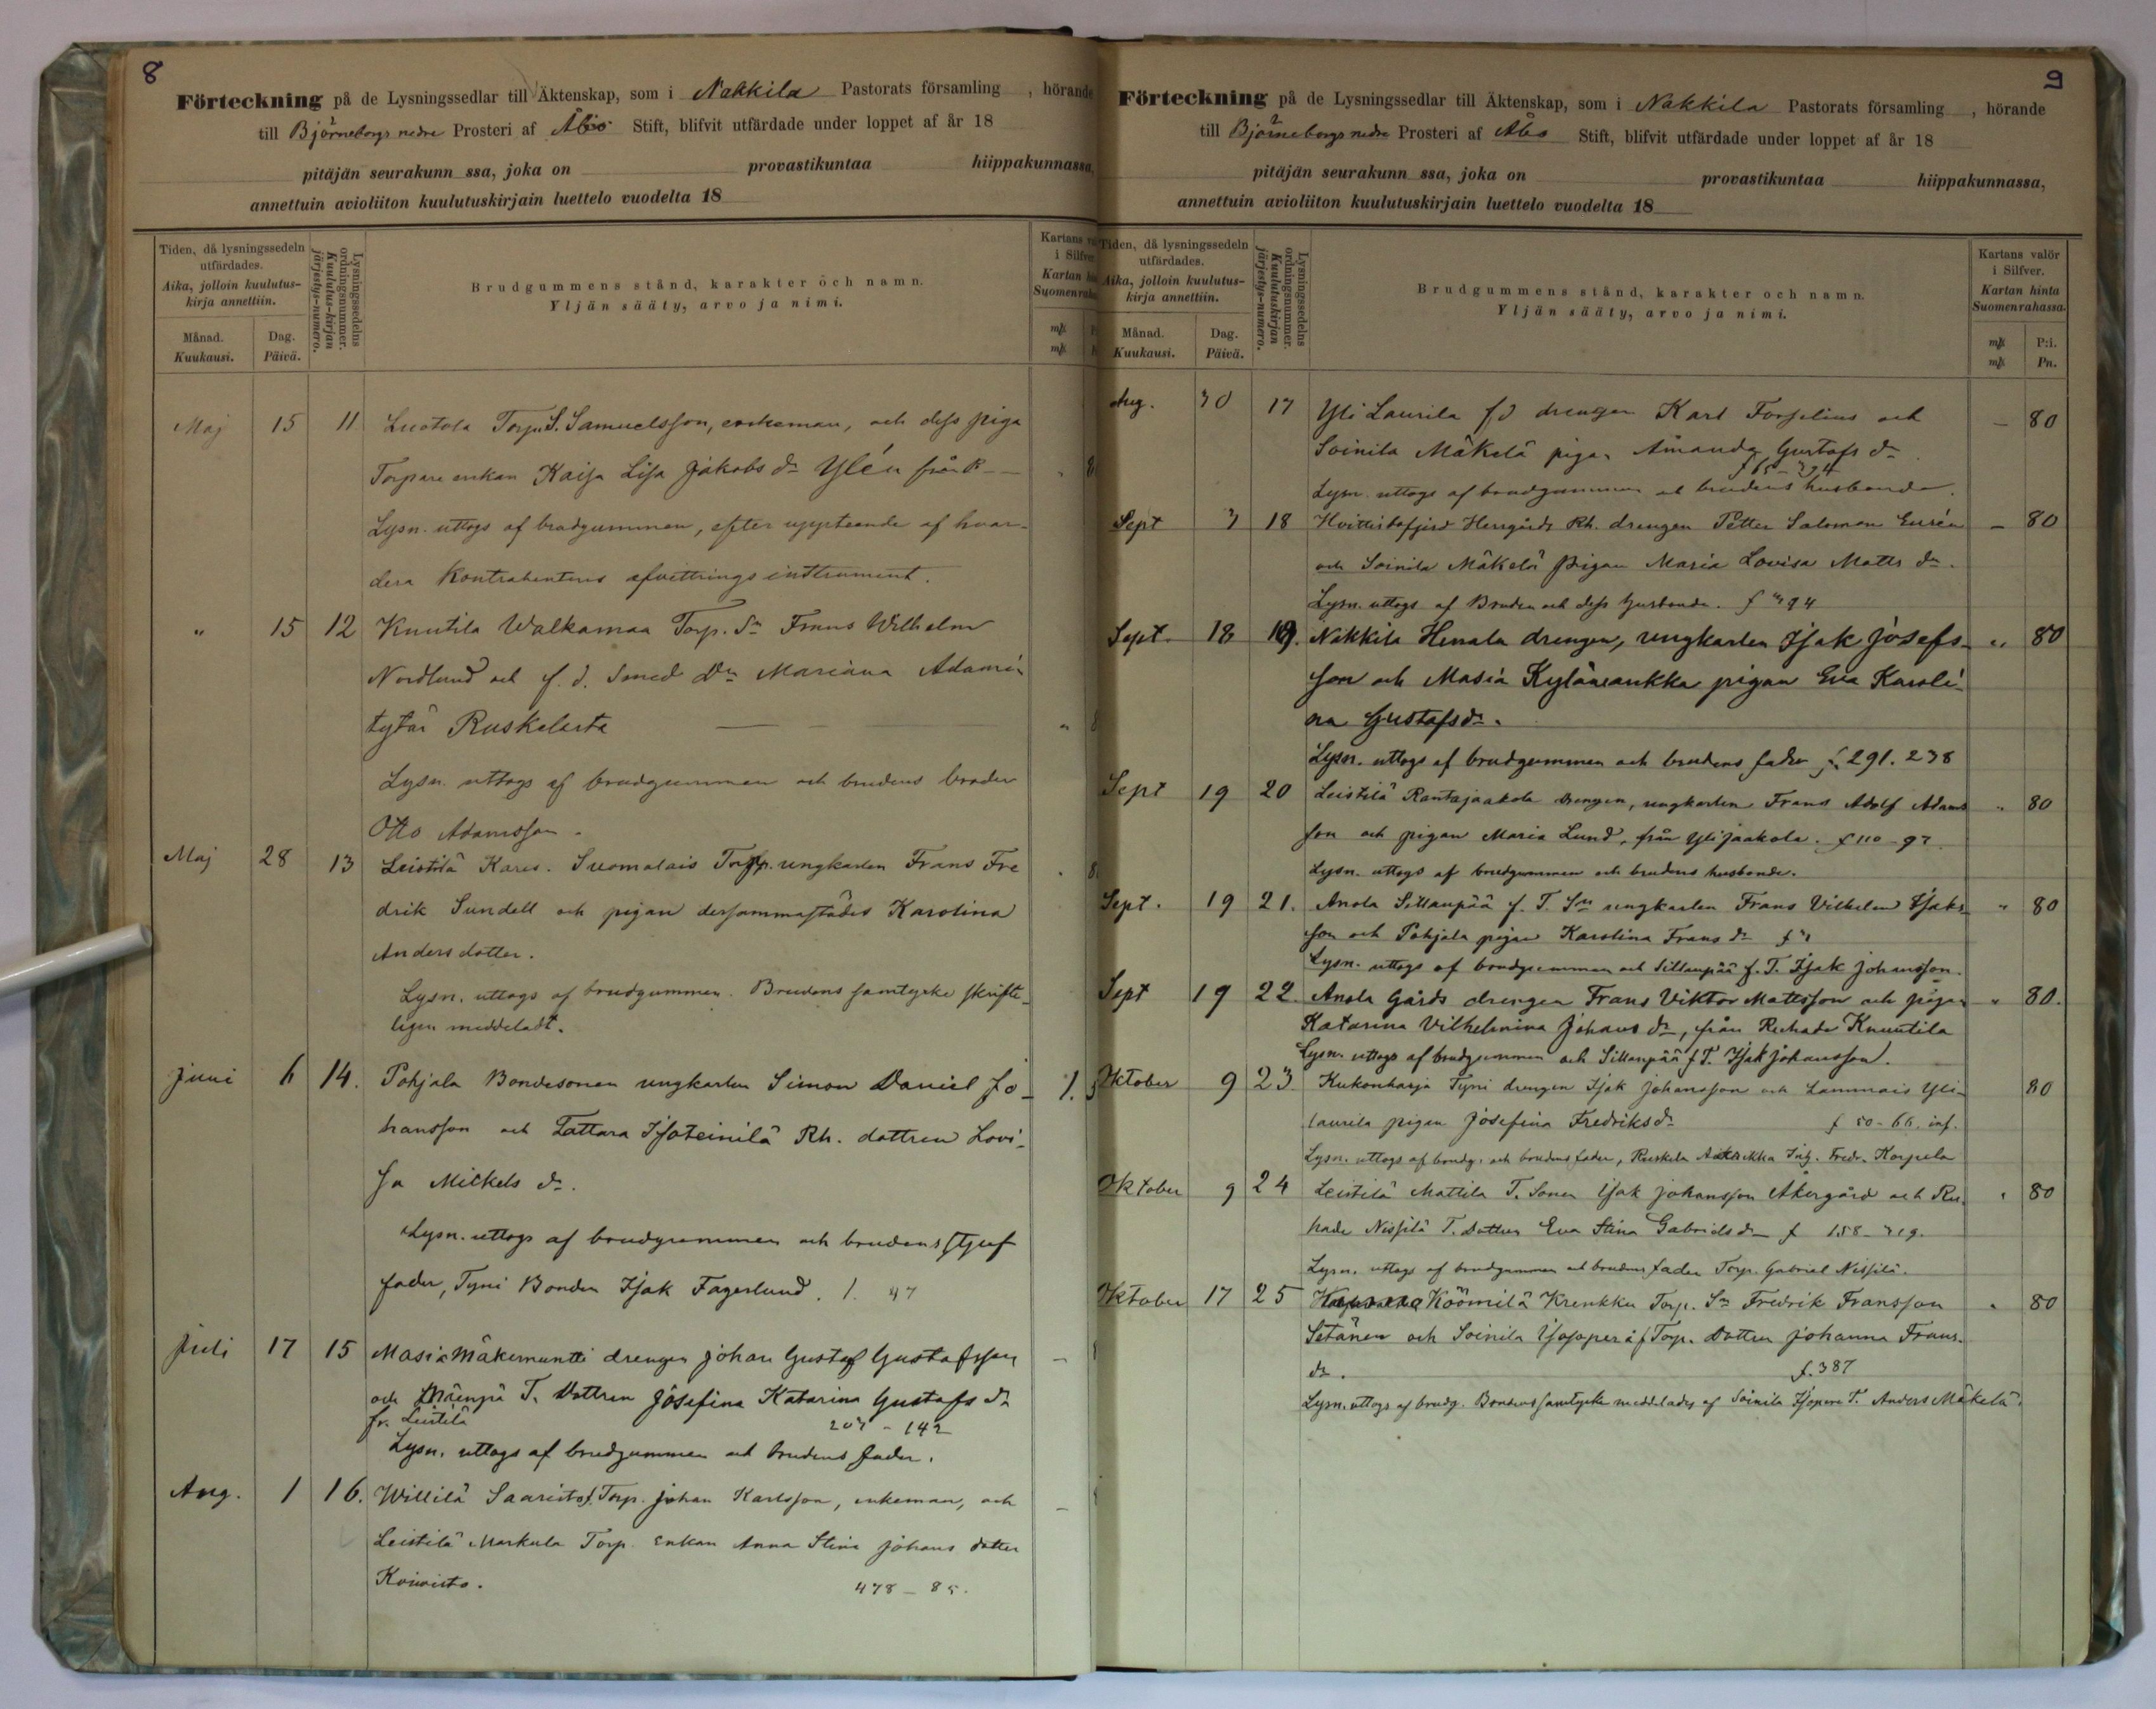 8
Förteckning på de Lysningssedlar till Äktenskap, som i Nakkila Pastorats församling , hörande
till Björneborgs nedre Prosteri af Åbo Stift, blifvit utfärdade under loppet af år 18
pitäjän seurakunn ssa, joka on provastikuntaa hiippakunnassa,
annettuin avioliiton kuulutuskirjain luettelo vuodelta 18
Tiden, då lysningssedeln utfärdades.
Aika, jolloin kuulutus-kirja annettiin.
Månad. Kuukausi.
Dag. Päivä.
Lysningssedelns ordningsnummer.
Kuulutus-kirjan järjestys-numero.
Brudgummens stånd, karakter och namn.
Yljän sääty, arvo ja nimi.
Kartans
i Silfver
Kartan
Suomenraha
mk
mk
Maj 15 11 Luotola Torp. S. Samuelsson, enkeman, och dess piga
Torpare enkan Kaisa Lisa Jakobs dr Ylén från
Lysn. uttogs af brudgummen, efter uppteende af hvar-
dera Kontrahentens afvittringsinstrument.
" 15 12 Knuutila Walkamaa Torp. Sn Frans Wilhelm
Nordlund och f. d. Smed Dn Mariana Adamin
tytär Ruskelasta
Lysn. uttogs af brudgummen och brudens broder
Otto Adamsson.
Maj 28 13 Leistilä Kares. Suomalais Torp. ungkarlen Frans Fre
drik Sundell och pigan dersammastädes Karolina
Andersdotter.
Lysn. uttogs af brudgummen. Brudens samtycke skrifte-
ligen meddeladt.
Juni 6 14. Pohjala Bondesonen ungkarlen Simon Daniel Jo-
hansson och Tattara Isoteinilä Rh. dottren Lovi-
sa Mickels dr. 1.
Lysn. uttogs af brudgummen och brudens styf
fader, Tyni Bonden Isak Fagerlund. 1. 47
Juli 17 15 Masia Mäkimuntti drengen Johan Gustaf Gustafsson
och Mäenpä T. Dottren Josefina Katarina Gustafs dr
fr. Leistilä 207 - 142
Lysn. uttogs af brudgummen och brudens fader.
Aug. 1 16. Willilä Saaristo f. Torp. Johan Karlsson, enkeman, och
Leistilä Markula Torp. Enkan Anna Stina Johans dotter
Koivisto. 478 - 85.
9
Förteckning på de Lysningssedlar till Äktenskap, som i Nakkila Pastorats församling , hörande
till Björneborgs nedre Prosteri af Åbo Stift, blifvit utfärdade under loppet af år 18
pitäjän seurakunn ssa, joka on provastikuntaa hiippakunnassa,
annettuin avioliiton kuulutuskirjain luettelo vuodelta 18
Tiden, då lysningssedeln utfärdades.
Aika, jolloin kuulutus-kirja annettiin.
Månad. Kuukausi.
Dag. Päivä.
Lysningssedelns ordningsnummer.
Kuulutuskirjan järjestys-numero.
Brudgummens stånd, karakter och namn.
Yljän sääty, arvo ja nimi.
Kartans valör i Silfver.
Kartan hinta Suomenrahassa.
mk P:i.
mk Pn.
Aug. 30 17 Yli Laurila fd drengen Karl Forselius och — 80
Soinila Mäkelä pigan Amanda Gustafs dr.
Lysn. uttogs af brudgummen och brudens husbonde.
Sept 3 18 Hvittisbofjerd Herrgårds Rh. drengen Petter Salomon Eurén — 80
och Soinila Mäkelä pigan Maria Lovisa Matts dr.
Lysn. uttogs af Bruden och dess husbonde.
Sept. 18 19. Nakkila Hennala drengen, ungkarlen Isak Josefs- " 80
son och Masia Kylänankka pigan Eva Karoli-
na Gustafsdr.
Lysn. uttogs af brudgummen och brudens fader f. 291. 238
Sept 19 20 Leistilä Rantajaakola drengen, ungkarlen Frans Adolf Adams " 80
son och pigan Maria Lund, från Ylijaakola. f 110 - 97
Lysn. uttogs af brudgummen och brudens husbonde.
Sept. 19 21. Anola Sillanpää f. T. Sn ungkarlen Frans Vilhelm Isaks- " 80
son och Pohjala pigan Karolina Frans dr
Lysn. uttogs af brudgummen och Sillanpää f. T. Isak Johansson.
Sept 19 22. Anola Gårds drengen Frans Viktor Mattsson och pigan " 80.
Katarina Vilhelmina Johans dr, från Ruhade Knuutila
Lysn. uttogs af brudgummen och Sillanpää f T. Isak Johansson.
Oktober 9 23 Kukonharja Tyni drengen Isak Johansson och Lammais Yli- 80
laurila pigan Josefina Fredriksdr f 50 - 66. inf.
Lysn. uttogs af brudg. och brudens fader, Ruskela Inh. Fredr. Korpela
Oktober 9 24 Leistilä Mattila T. Sonen Isak Johansson Åkergård och Ru- " 80
hade Nissilä T. Dottren Eva Stina Gabriels dr f 158 - 319.
Lysn. uttogs af brudgummen och brudens fader Torp. Gabriel Nissilä.
Oktober 17 25 Köömilä Krenkku Torp. Sn Fredrik Fransson " 80
Setänen och Soinila Isoperä f Torp. Dottren Johanna Frans-
dr. f. 387
Lysn. uttogs af brudg. Brudens samtycke meddelades af Soinila Isoperä T. Anders Mäkelä.